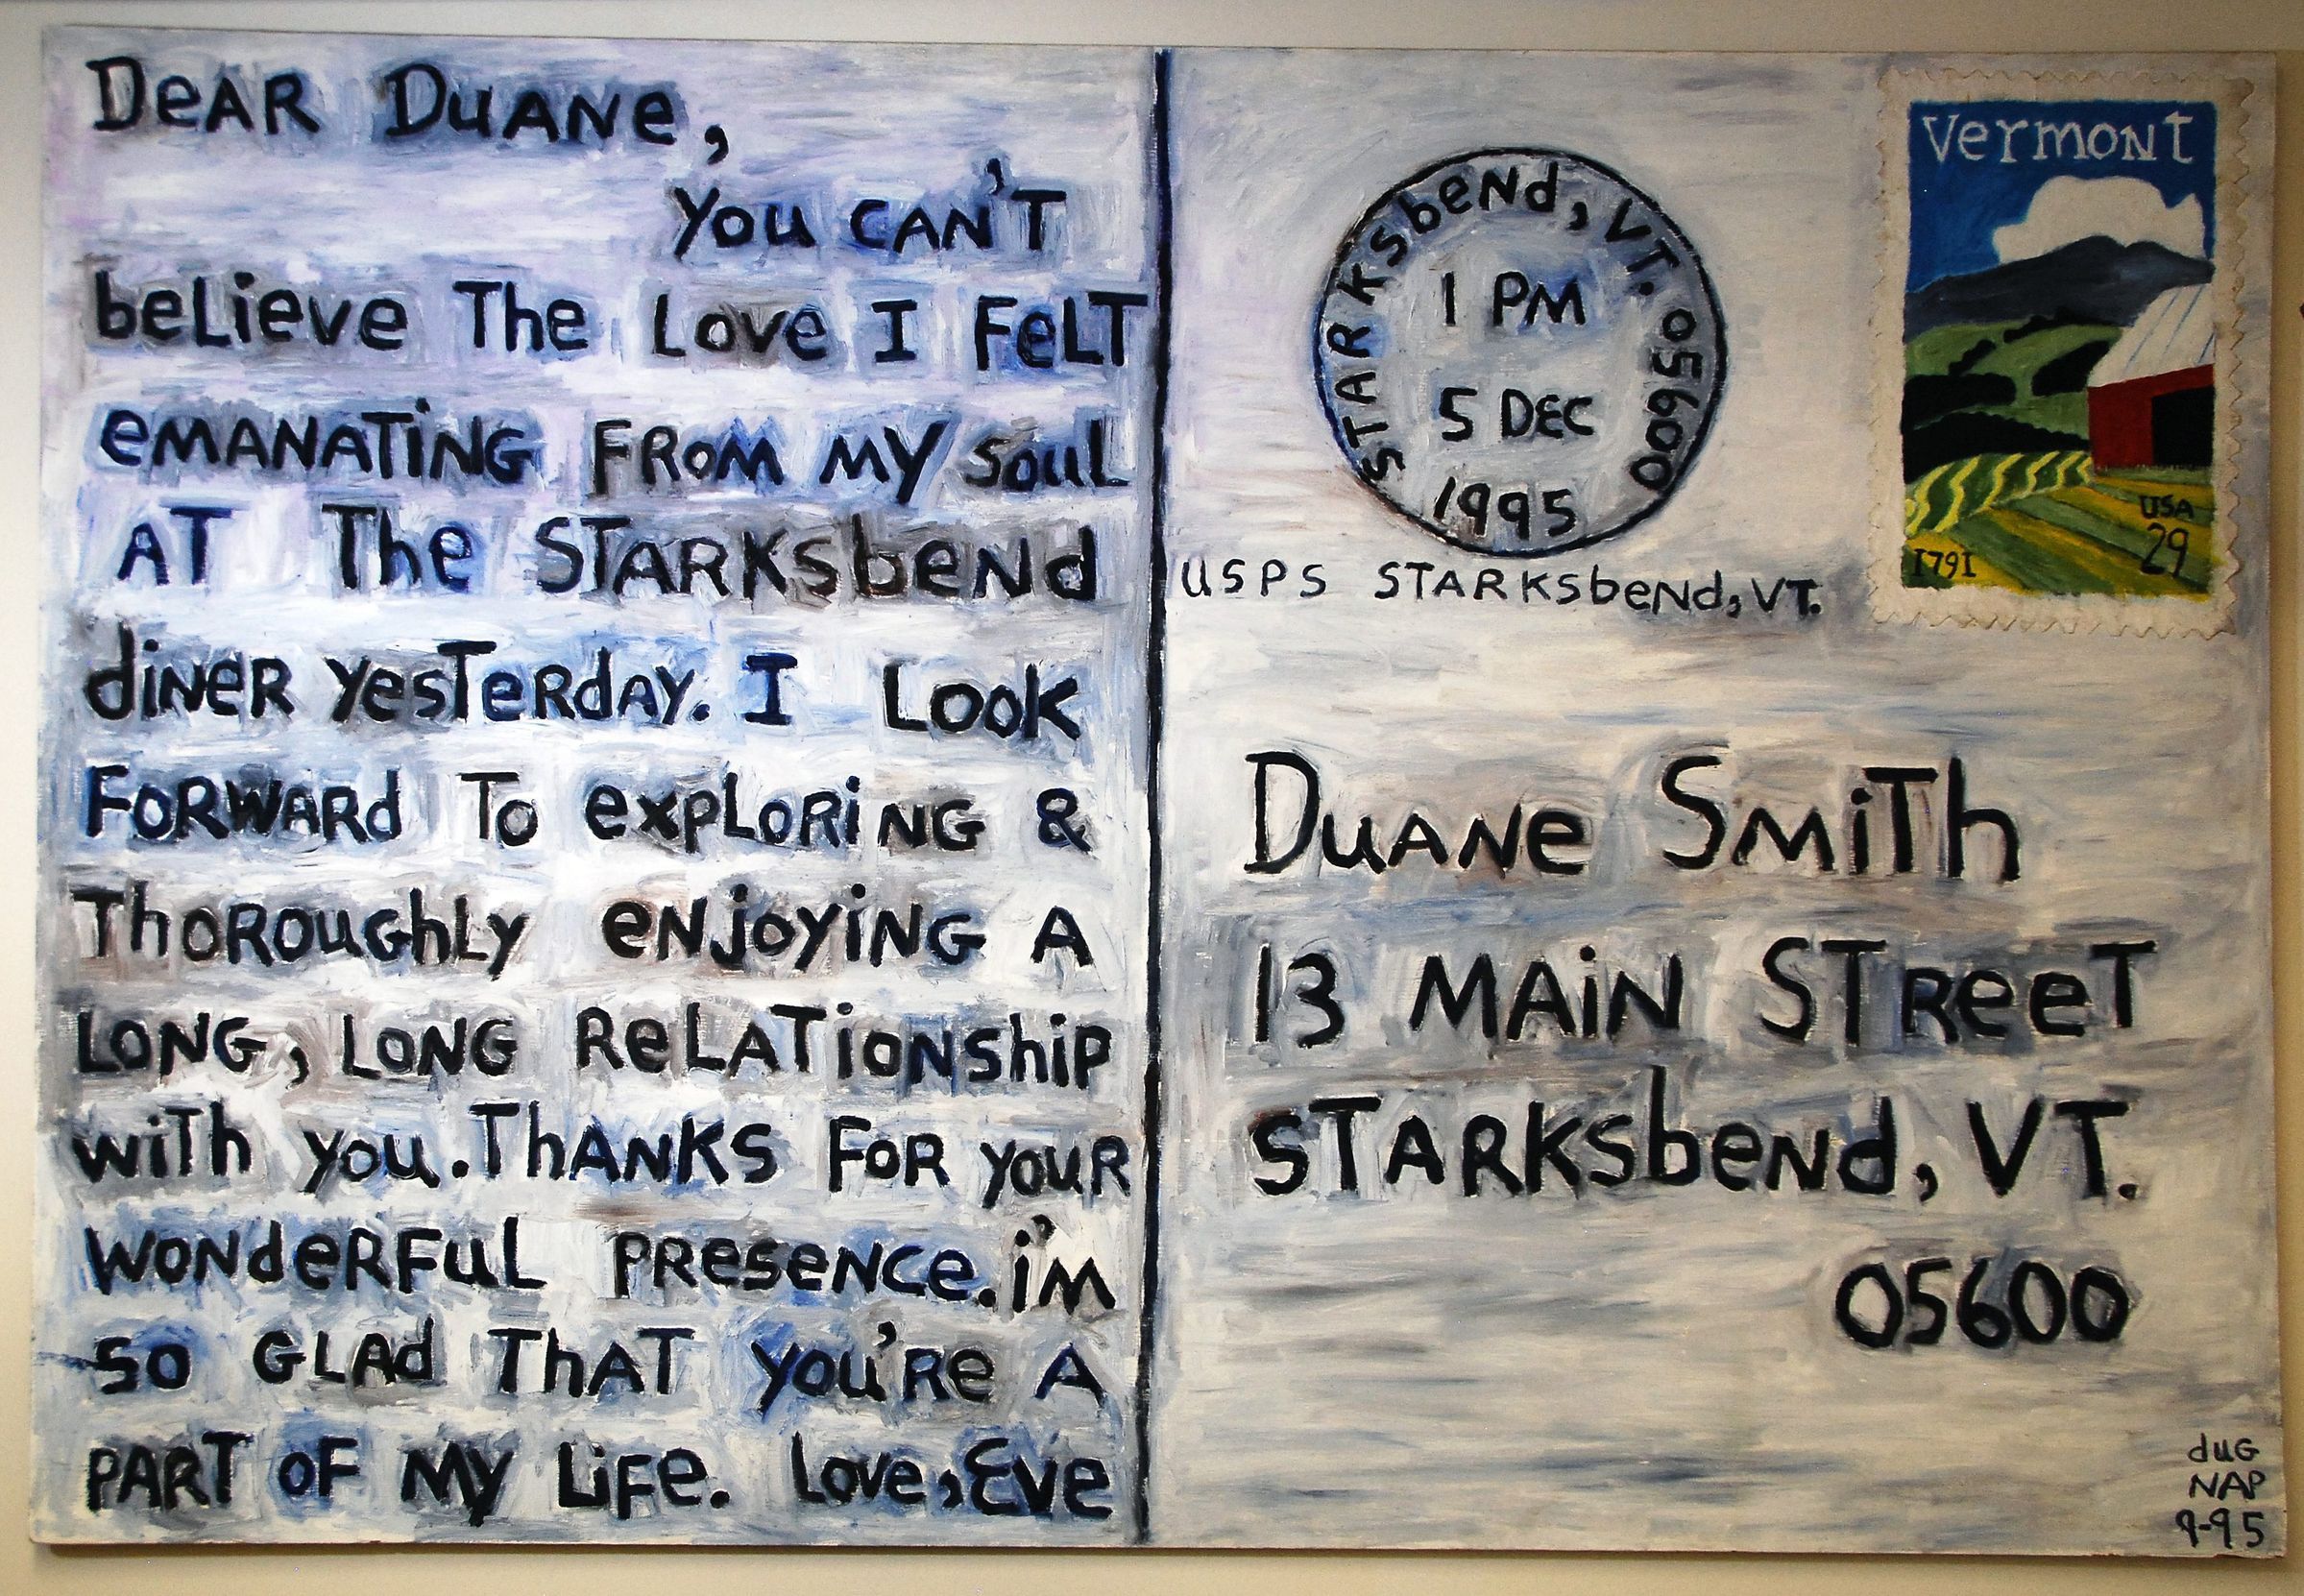 DeAR DuANe,
you CAN'T
beLieve The Love I FeLT
eMANATiNG FROM MY souL
AT The STARKsbeNd
diNeR yesTeRdAY. I LooK
FoRWARd To expLoRiNG &
ThoRouGhLy eNjoyiNG A
LONG, LONG ReLATioNship
wiTh you. ThANKS FoR youR
woNdeRFuL pResence. i'M
so GLAd ThAT you're A
PART oF My LiFe. Love, Eve
STARKsbeNd, VT. 05600
1 PM
5 DEC
1995
USPS STARKsbeNd, VT.
Vermont
USA
29
1791
DuANe SmiTh
13 MAiN STReeT
STARKsbeNd, VT.
05600
duG
NAP
9-95